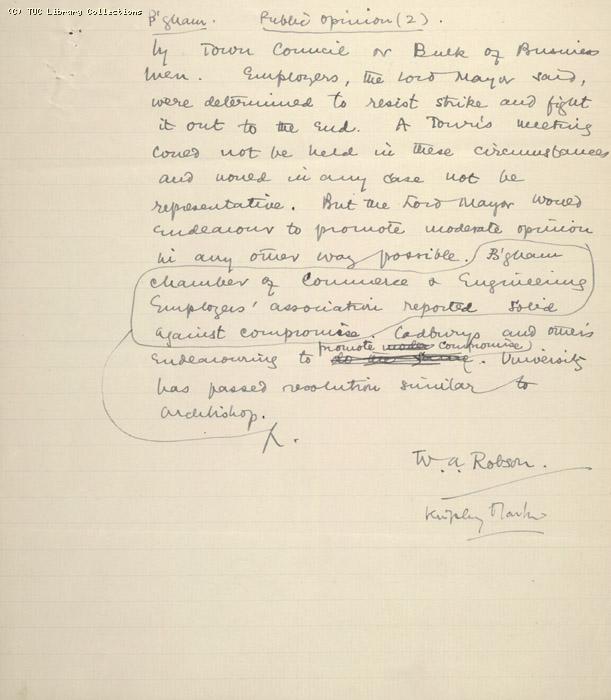 (C) TUC Library Collections
B'gham. Public Opinion (2).
by Town Council or Bulk of Business
men. Employers, the Lord Mayor said,
were determined to resist strike and fight
it out to the end. A Town's meeting
could not be held in these circumstances
and would in any case not be
representative. But the Lord Mayor would
endeavour to promote moderate opinion
in any other way possible. B'gham
Chamber of Commerce & Engineering
Employers' association reported solid
against compromise. Cadburys and others
promote compromise
endeavouring to . University
has passed resolution similar to
Archbishop.
W. A. Robson.